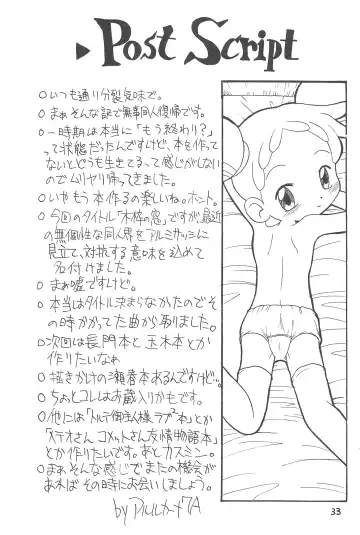 ▶Post Script
○いつも通り分裂気味で。
○まぁそんな訳で無事同人復帰です。
○一時期は本当に「もう終わり?」
って状態だったんですけど、本を作って
ないとどうも生きてるって感じがしない
のでムリヤリ帰ってきました。
○いやもう本作るの楽しいね。ホント。
○今回のタイトル「木枠の窓」ですが、最近
の無個性な同人界をアルミサッシに
見立て、対抗する意味を込めて
名付けました。
○まぁ嘘ですけど。
○本当はタイトル決まらなかったのでそ
の時かかってた曲から取りました。
○次回は長門本と玉木本とか
作りたいなぁ
○描きかけの瀬春本あるんですけど…。
○ちょとコレはお蔵入りかもです。
○他には「トルテ御主人様ラブ²本」とか
「ステオさんコメットさん友情物語本」
とか作りたいです。あとカスミン。
○まぁそんな感じでまたの機会が
あればその時にお会いしましょう。
by アルルカーナ7A
33